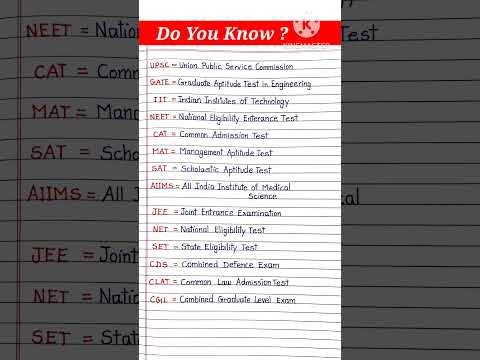 Do You Know ?
KINEMASTER
UPSC = Union Public Service Commission
GATE = Graduate Aptitude Test in Engineering
IIT = Indian Institutes of Technology
NEET = National Eligibility Enterance Test
CAT = Common Admission Test
MAT = Management Aptitude Test
SAT = Scholastic Aptitude Test
AIIMS = All India Institute of Medical
Science
JEE = Joint Entrance Examination
NET = National Eligibility Test
SET = State Eligibility Test
CDS = Combined Defence Exam
CLAT = Common Law Admission Test
CGL = Combined Graduate Level Exam
NEET = Nation
CAT = Comm
MAT = Mana
SAT = Scho
AIIMS = All
JEE = Joint
NET = Natio
SET = Stat
Test
cal